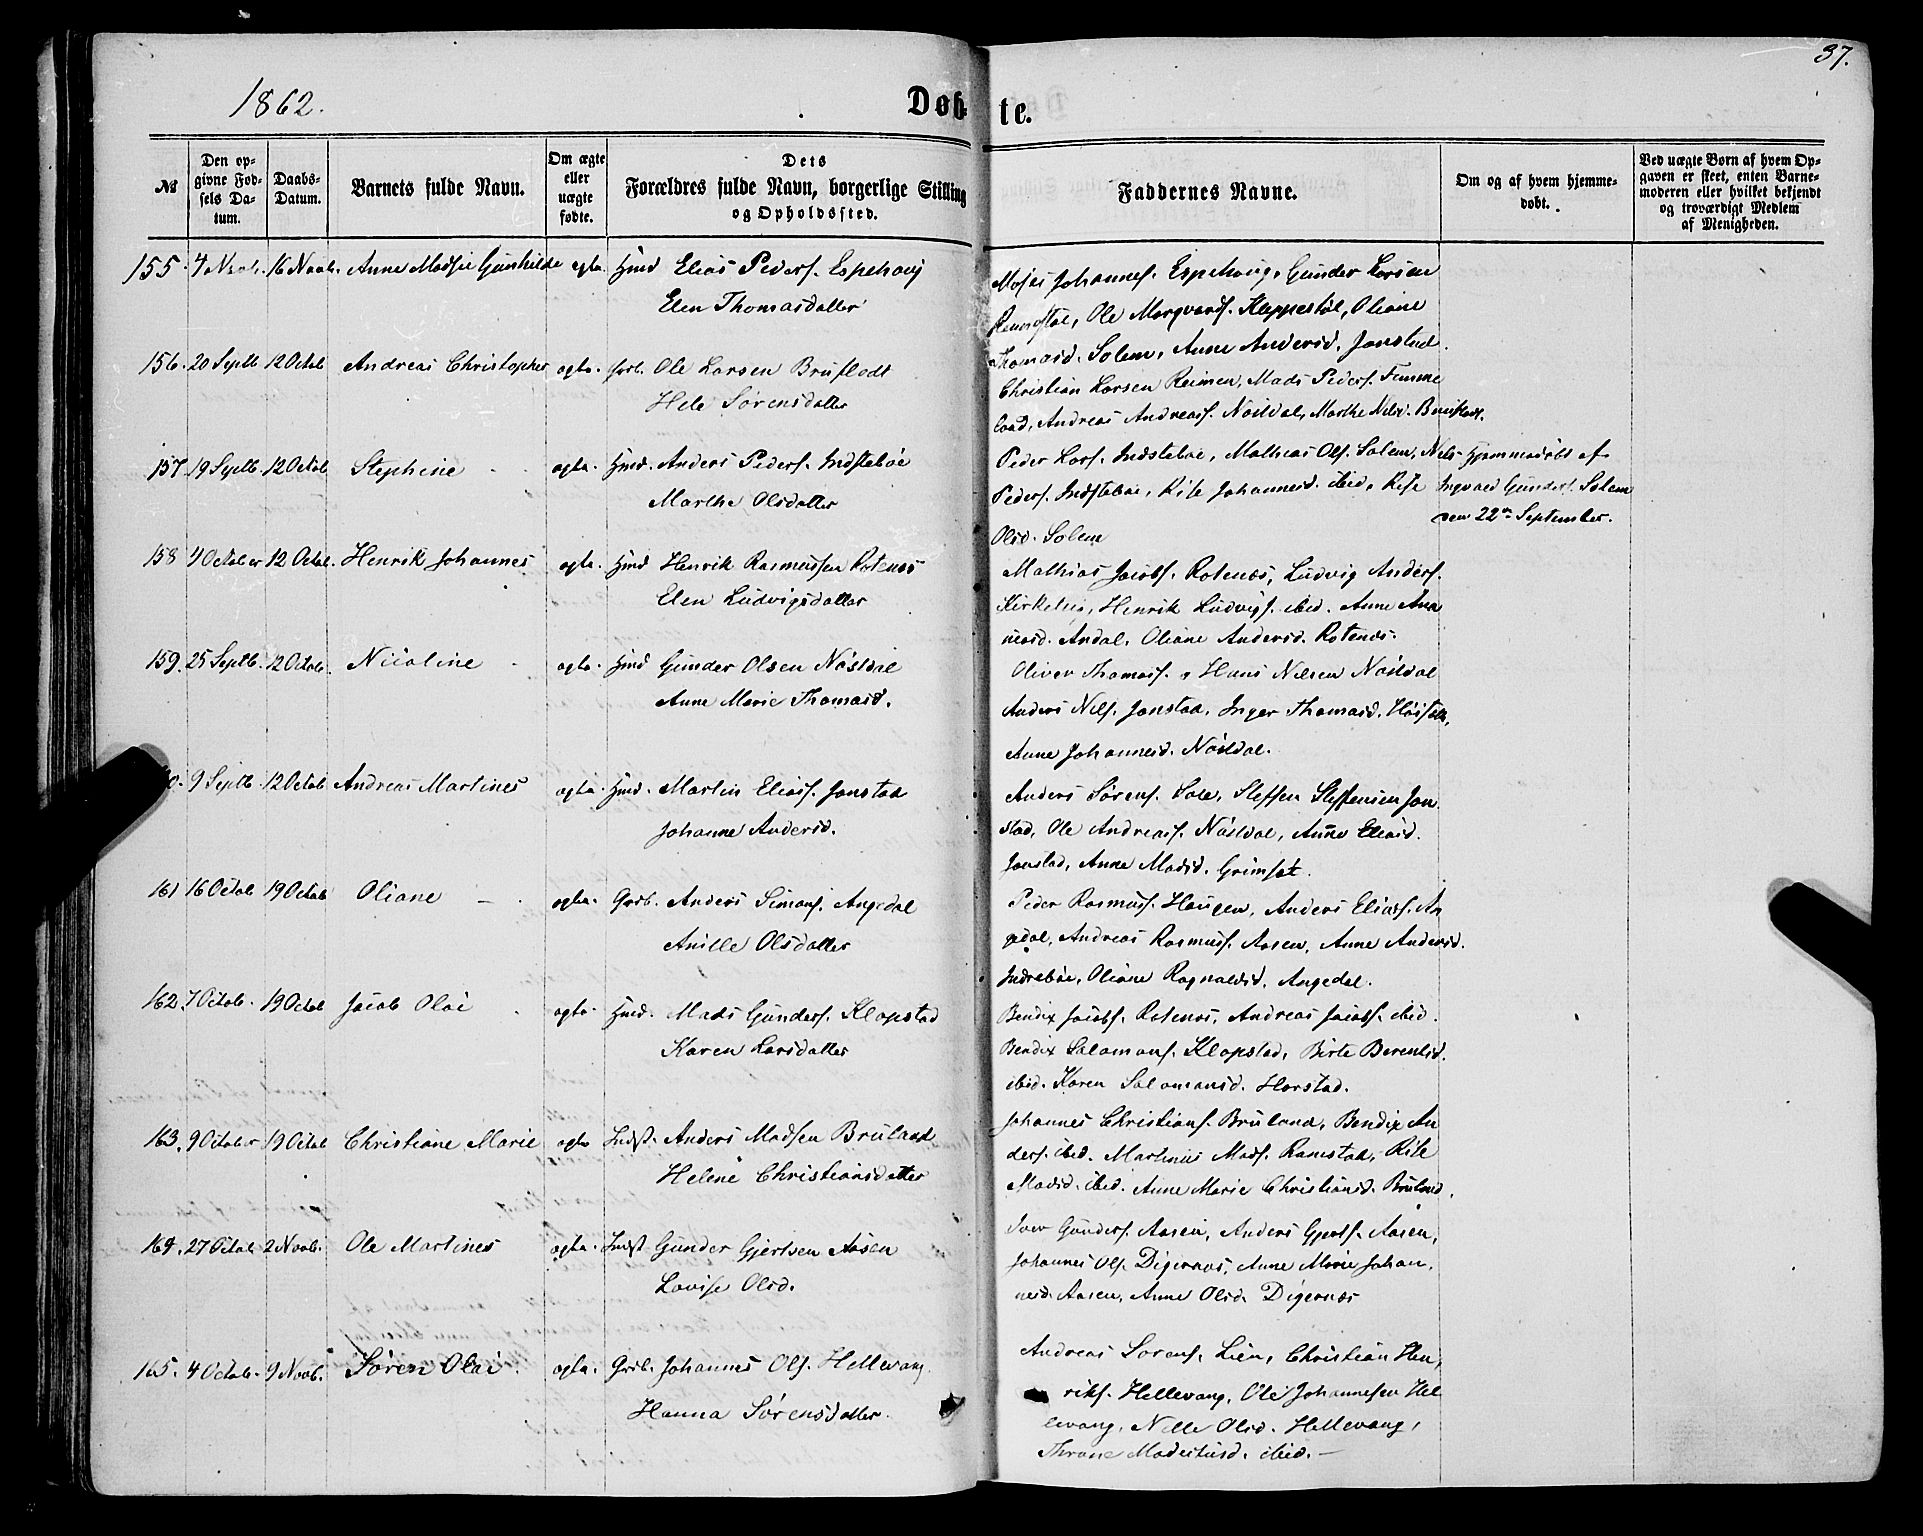 37.
1862.
Døbte.
№
Den opgivne Fødsels Datum.
Daabs-Datum.
Barnets fulde Navn.
Om ægte eller uægte fødte.
Dets Forældres fulde Navn, borgerlige Stilling og Opholdssted.
Faddernes Navne.
Om og af hvem hjemmedøbt.
Ved uægte Børn af hvem Opgaven er skeet, enten Barnemoderen eller hvilket bekjendt og troværdigt Medlem af Menigheden.
155. 4 Novb. 16 Novb. Anne Madsie Gunhilde egta. Hmd Elias Peders. Espehoug
Elen Thomasdatter
Moses Johannes. Espehoug, Gunder Larsen
Ole Marqvards. Kleppestøl, Oliane
Thomasd. Solem, Anne Andersd. Jonstad.
156. 20 Septb 12 Octob Andreas Christopher egta. Grb. Ole Larsen Bruflodt
Hele Sørensdatter
Christian Larsen Reimen, Mads Peders. Timme
land, Andreas Andreass. Nøsdal, Marthe Nilsd. Bruflodt.
157. 19 Septb. 12 Octob Stephine egta. Hmd. Anders Peders. Indstebøe
Marthe Olsdatter
Peder Lars. Indstebøe, Mathias Ols. Solem, Nils
Peders. Indstebøe, Rise Johannesd. ibid, Rise
Olsd. Solem
Hjemmedøbt af
Ingvald Gunders. Solem
den 22de September.
158 4 October 12 Octob. Henrik Johannes egta. Hmd Henrik Rasmussen Rotenæs
Elen Ludvigsdatter
Mathias Jacobs. Rotenæs, Ludvig Anders.
Henrik Ludvigs. ibid. Anne And
reasd. Andal, Oliane Andersd. Rotenæs.
159. 25 Septb. 12 Octob. Nicoline egta. Hmd Gunder Olsen Nøsdal
Anne Marie Thomasd.
Oliver Thomass. Hans Nilsen Nøsdal
Anders Nils. Jonstad, Inger Thomasd.
Anne Johannesd. Nøsdal.
0. 9 Septb. 12 Octob Andreas Martines egta. Hmd. Martin Elias. Jonstad
Johanne Andersd.
Anders Sørens. Sole, Steffen Steffensen Jon
stad, Ole Andreass. Nøsdal, Anne Eliasd.
Jonstad, Anne Madsd. Grimset.
161 16 Octob 19 Octob Oliane egta. Grb. Anders Simons. Angedal
Anille Olsdatter
Peder Rasmuss. Haugen, Anders Eliass. An
gedal, Andreas Rasmuss. Aasen, Anne Andersd.
Indrebøe, Oliane Ragnaldsd. Angedal.
162. 7 Octob. 19 Octob Jacob Olai egta. Hmd. Mads Gunders. Klopstad
Karen Larsdatter
Bendix Jacobs. Rotenæs, Andreas Jacobs. ibid.
Bendix Salamons. Klopstad, Birte Berentsd.
ibid. Karen Salamonsd. Horstad.
163. 9 October 19 Octob Christiane Marie egta Indst. Anders Madsen Bruland
Helene Christiansdatter
Johannes Christians. Bruland, Bendix An
ders. ibid. Martinus Mads. Ramstad, Rise
Madsd. ibid. Anne Marie Christiansd. Bruland.
164. 27 Octob 2 Novb. Ole Martines egta. Indst Gunder Gjertsen Aasen
Lovise Olsd.
Iver Gunders. Aasen, Anders Gjerts. Aasen,
Johannes Ols. Digernæs, Anne Marie Johan.
nesd. Aasen, Anne Olsd. Digernæs
165. 4 Octob. 9 Novb. Søren Olai egta. Grb. Johannes Ols. Hellevang
Hanna Sørensdatter.
Andreas Sørens. Lien, Christian Hen,
riks. Hellevang, Ole Johannesen Hel
levang, Nille Olsd. Hellevang,
Thrane Madsd. ibid.